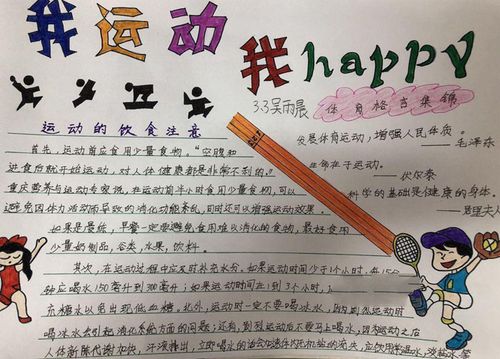 我运动
我happy
3.3吴雨晨
体育格言集锦
发展体育运动，增强人民体质。
——毛泽东
生命在于运动。
——伏尔泰
科学的基础是健康的身体。
——居里夫人
123
运动的饮食注意
首先，运动前应食用少量食物。“空腹和
进食后就开始运动，对人体健康都是非常不利的。”
重庆营养与运动专家说，在运动前半小时食用少量食物，可以
避免因体力活动而导致的消化功能紊乱，同时还可以增强运动效果。
如果是晨练，早餐一定要避免食用难以消化的食物，最好食用
少量奶制品，谷类，水果，饮料。
其次，在运动过程中应及时补充水分。如果运动时间少于1个小时，每15
钟应喝水150毫升到300毫升；如果运动时间在1到3个小时，
充糖水以免出现低血糖。此外，运动时一定不要喝冰水，因为剧烈运动时
喝冰水会引起消化系统方面的问题；还有，剧烈运动后不要马上喝水，因为运动之后
人体新陈代谢加快，汗液排出，立即喝水的话会加速体内无机盐的流失，应饮用常温水、淡盐水等